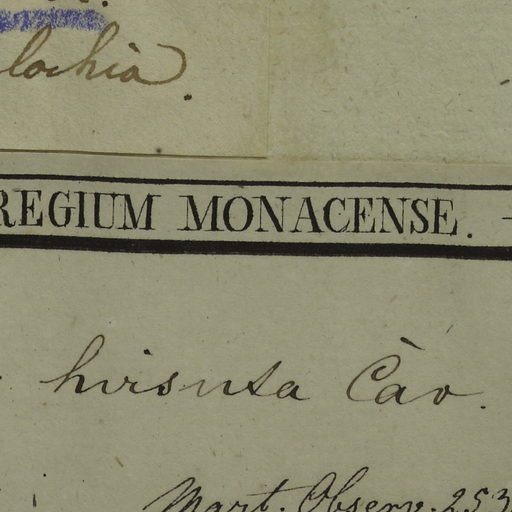 lochia.
REGIUM MONACENSE. -
hirsuta Càv.
Mart. Observ. 253